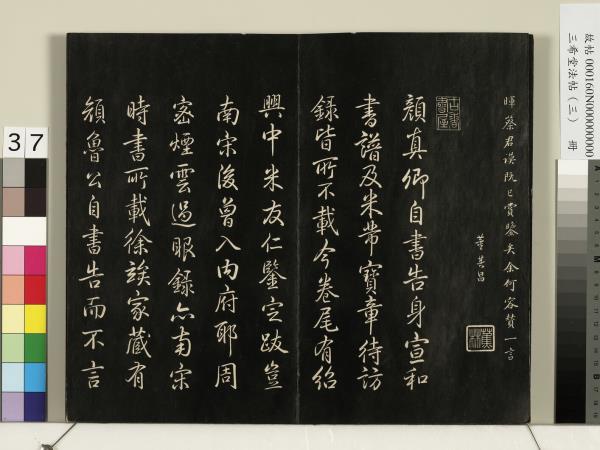 暉蔡君謨既已賞鑒矣余何容贊一言
董其昌
顏真卿自書告身宣和
書譜及米芾寶章待訪
錄皆所不載今卷尾有紹
興中米友仁鑒定跋豈
南宋後曾入內府耶周
密煙雲過眼錄亦南宋
時書所載徐琰家藏有
顏魯公自書告而不言
故帖 000160N000000000
三希堂法帖（三） 冊
37